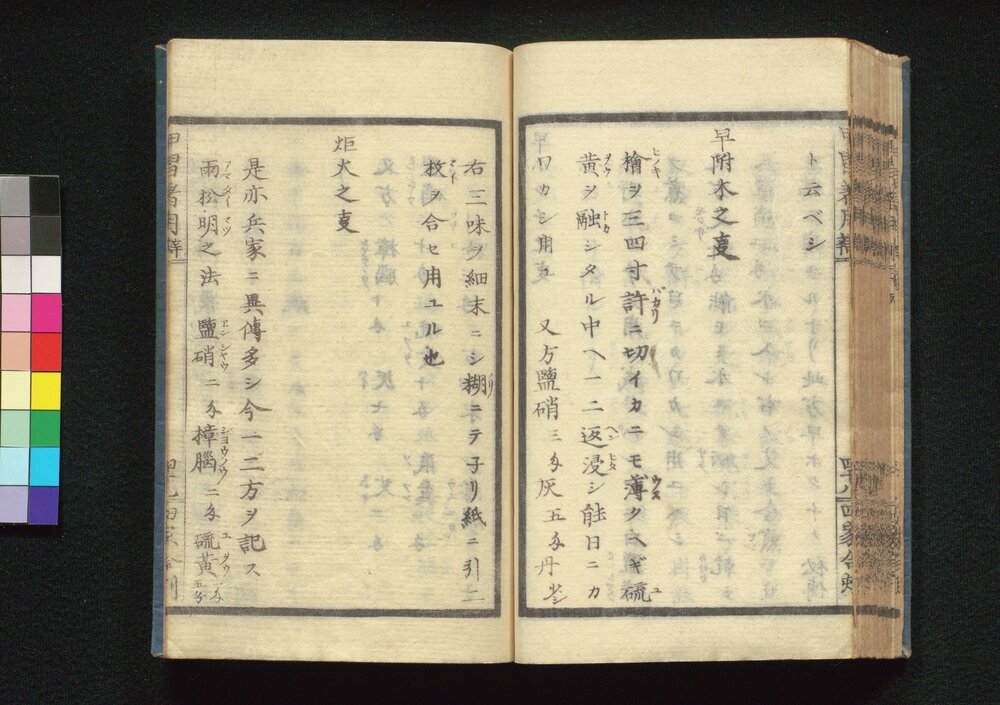 ト云ベシ
早附木之叓
檜ヲ三四寸許ニ切イカニモ薄クヘギ硫
黄ヲ融シタル中ヘ一二返浸シ能日ニカ
ワカシ用ユ 又方鹽硝三匁灰五匁丹
右三味ヲ細末ニシ糊ニテ子リ紙ニ引二
枚ヲ合セ用ユル也
炬火之叓
是亦兵家ニ異傳多シ今一二方ヲ記ス
雨松明之法 鹽硝二匁樟腦二匁硫黃
甲冑着用辨